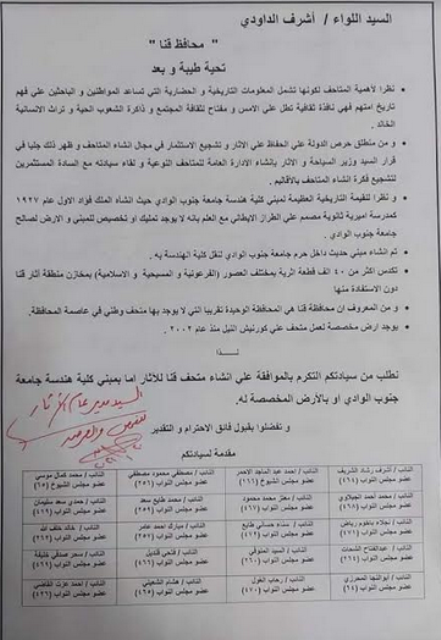 السيد اللواء / أشرف الداودي
" محافظ قنا "
تحية طيبة و بعد
• نظرا لأهمية المتاحف لكونها تشمل المعلومات التاريخية و الحضارية التي تساعد المواطنين و الباحثين علي فهم
تاريخ امتهم فهي نافذة ثقافية تطل علي الامس و مفتاح لثقافة المجتمع و ذاكرة الشعوب الحية و تراث الانسانية
الخالد .
• و من منطلق حرص الدولة علي الحفاظ علي الآثار و تشجيع الاستثمار في مجال انشاء المتاحف و ظهر ذلك جليا في
قرار السيد وزير السياحة و الآثار بانشاء الادارة العامة للمتاحف النوعية و لقاء سيادته مع السادة المستثمرين
لتشجيع فكرة انشاء المتاحف بالأقاليم .
• و نظرا للقيمة التاريخية العظيمة لمبني كلية هندسة جامعة جنوب الوادي حيث انشاه الملك فؤاد الاول عام ١٩٢٧
كمدرسة اميرية ثانوية مصمم علي الطراز الايطالي مع العلم بانه لا يوجد تمليك او تخصيص للمبني و الارض لصالح
جامعة جنوب الوادي .
• تم انشاء مبني حديث داخل حرم جامعة جنوب الوادي لنقل كلية الهندسة به .
• تكدس اكثر من ٤٠ الف قطعة اثرية بمختلف العصور (الفرعونية و المسيحية و الاسلامية) بمخازن منطقة آثار قنا
دون الاستفادة منها
• و من المعروف ان محافظة قنا هي المحافظة الوحيدة تقريبا التي لا يوجد بها متحف وطني في عاصمة المحافظة.
• يوجد ارض مخصصة لعمل متحف علي كورنيش النيل منذ عام ٢٠٠٢ .
لـــــذا
نطلب من سيادتكم التكرم بالموافقة علي انشاء متحف قنا للآثار اما بمبني كلية هندسة جامعة
جنوب الوادي او بالأرض المخصصة له.
السيد مدير عام آثار
و تفضلوا بقبول فائق الاحترام و التقدير
مقدمة لسيادتكم
النائب / أشرف رشاد الشريف
النائب / احمد عبد الماجد الاحمر
النائب / مصطفي محمود مصطفي
النائب / محمد كمال موسي
عضو مجلس النواب
عضو مجلس الشيوخ
عضو مجلس النواب (٢٥٦)
عضو مجلس الشيوخ
النائب / محمد أحمد الجبلاوي
النائب / معتز محمد محمود
النائب / محمد طايع سعد
النائب / حمدي سعد سليمان
عضو مجلس النواب
عضو مجلس النواب
عضو مجلس النواب
عضو مجلس النواب
النائب / نجلاء باخوم رياض
النائب / سناء حساني طايع
النائب / مبارك احمد عامر
النائب / خالد خلف الله
عضو مجلس النواب
عضو مجلس النواب
عضو مجلس النواب
عضو مجلس النواب
النائب / عبدالفتاح الشحات
النائب / السيد المنوفي
النائب / فتحي قنديل
النائب / سحر صدقي خليفة
عضو مجلس النواب
عضو مجلس النواب (٢٦٠)
عضو مجلس النواب
عضو مجلس النواب
النائب / ابوالنجا المحرزي
النائب / رحاب الغول
النائب / هشام الشعيني
النائب / احمد عزت القاضي
عضو مجلس النواب
عضو مجلس النواب
عضو مجلس النواب
عضو مجلس النواب